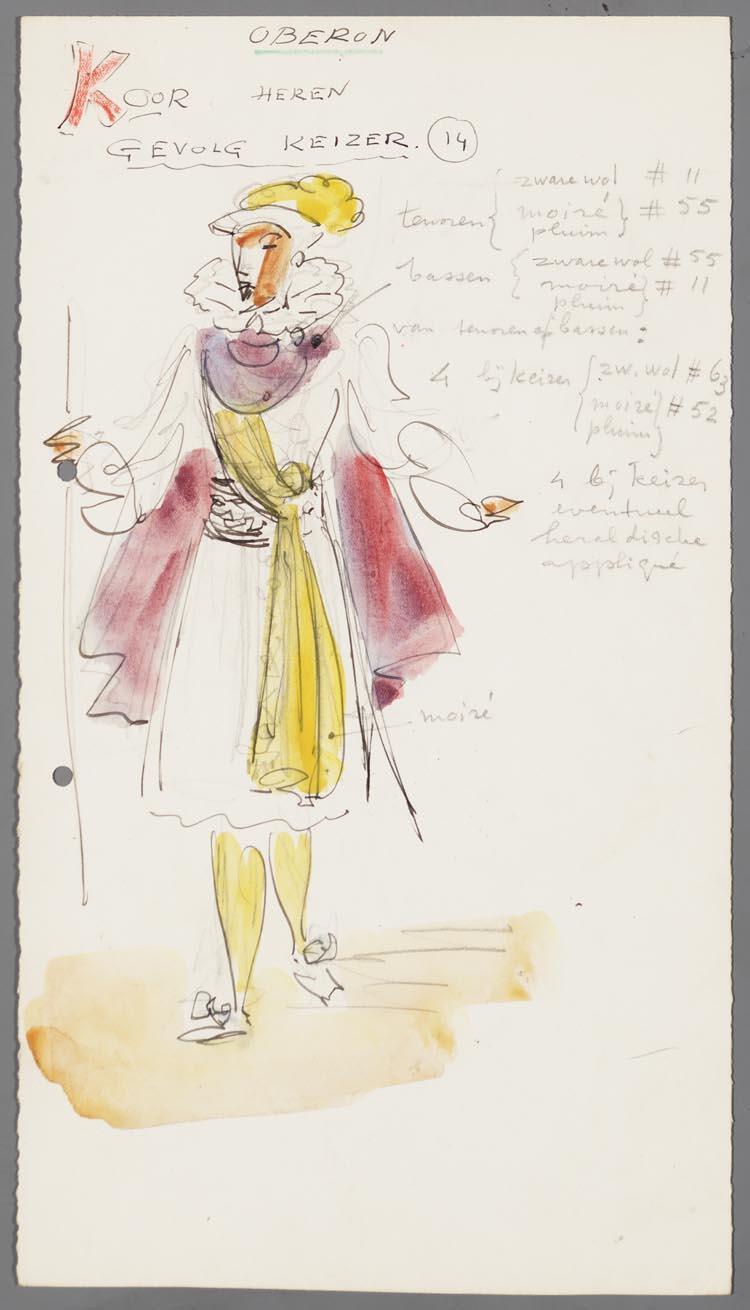 OBERON
KOOR HEREN
GEVOLG KEIZER. 14
zware wol # 11
tenoren { moiré } # 55
pluim
bassen { zware wol # 55
moiré } # 11
pluim
van tenoren of bassen:
4 bij keizer { zw. wol # 63
moiré } # 52
pluim
4 bij keizer
eventueel
heraldische
appliqué
moiré